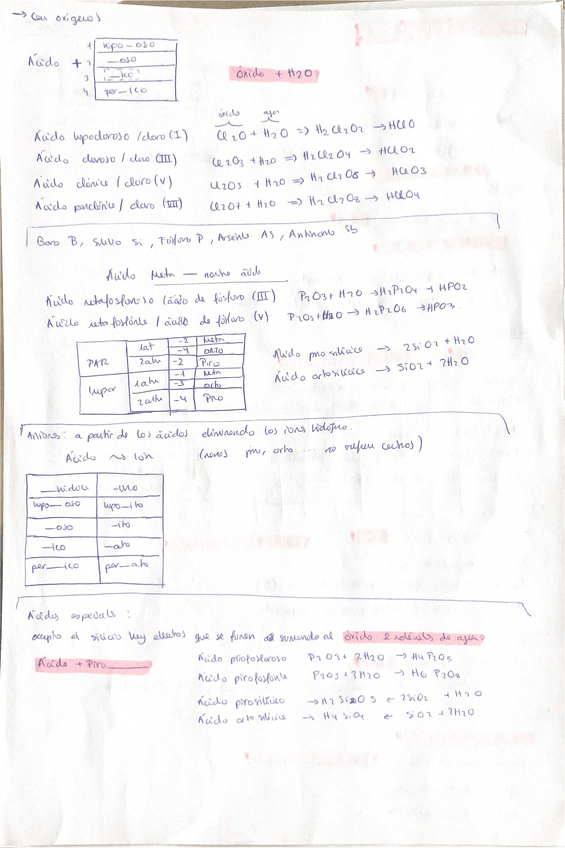 → Con oxígenos
Ácido +
1 hipo—oso
2 —oso
3 —ico
4 per—ico
óxido + H2O
óxido agua
Ácido hipocloroso / cloro (I) Cl2O + H2O => H2Cl2O2 → HClO
Ácido cloroso / cloro (III) Cl2O3 + H2O => H2Cl2O4 → HClO2
Ácido clórico / cloro (V) Cl2O5 + H2O => H2Cl2O6 → HClO3
Ácido perclórico / cloro (VII) Cl2O7 + H2O => H2Cl2O8 → HClO4
Boro B, Silicio Si, Fósforo P, Arsénico As, Antimonio Sb
Ácido Meta — nombre ácido
Ácido metafosforoso / ácido de fósforo (III) P2O3 + H2O → H2P2O4 → HPO2
Ácido metafosfórico / ácido de fósforo (V) P2O5 + H2O → H2P2O6 → HPO3
PAR 1at -2 Meta
-4 Orto
2ath -2 Piro
Impar 1ath -1 Meta
-3 orto
2ath -4 Piro
Ácido piro silícico → 2SiO2 + H2O
Ácido ortosilícico → SiO2 + 2H2O
Aniones: a partir de los ácidos eliminando los ions hidógeno.
Ácido ~> Ión (menos piro, orto ... no sufren cambios)
—hídrico -uro
hipo—oso hipo-ito
—oso -ito
—ico —ato
per—ico per—ato
Ácidos especiales:
excepto el silicio hay elementos que se forman sumando al óxido 2 moléculas de agua.
Ácido + Piro____
Ácido pirofosforoso P2O3 + 2H2O → H4P2O5
Ácido pirofosfórico P2O5 + 3H2O → H6 P2O8
Ácido pirosilícico → H2Si2O5 ← 2SiO2 + H2O
Ácido ortosilícico → H4SiO4 ← SiO2 + 2H2O